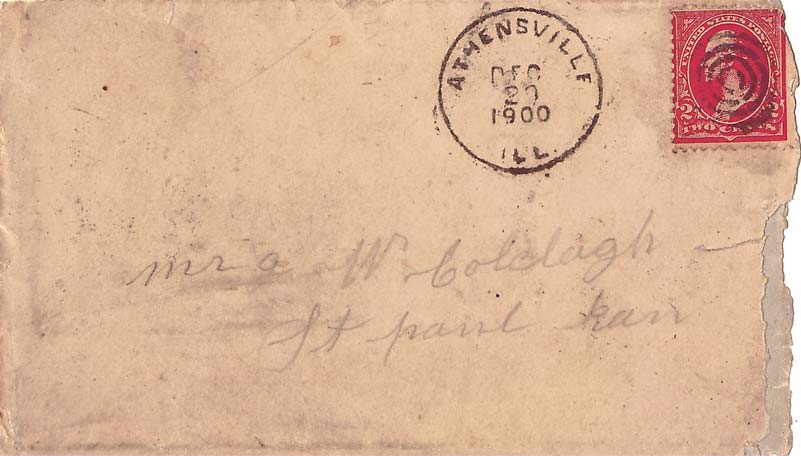 ATHENSVILLE
DEC
20
1900
ILL.
UNITED STATES POSTAGE
2 2
TWO CENTS
mr a W Colclagh
St paul kan